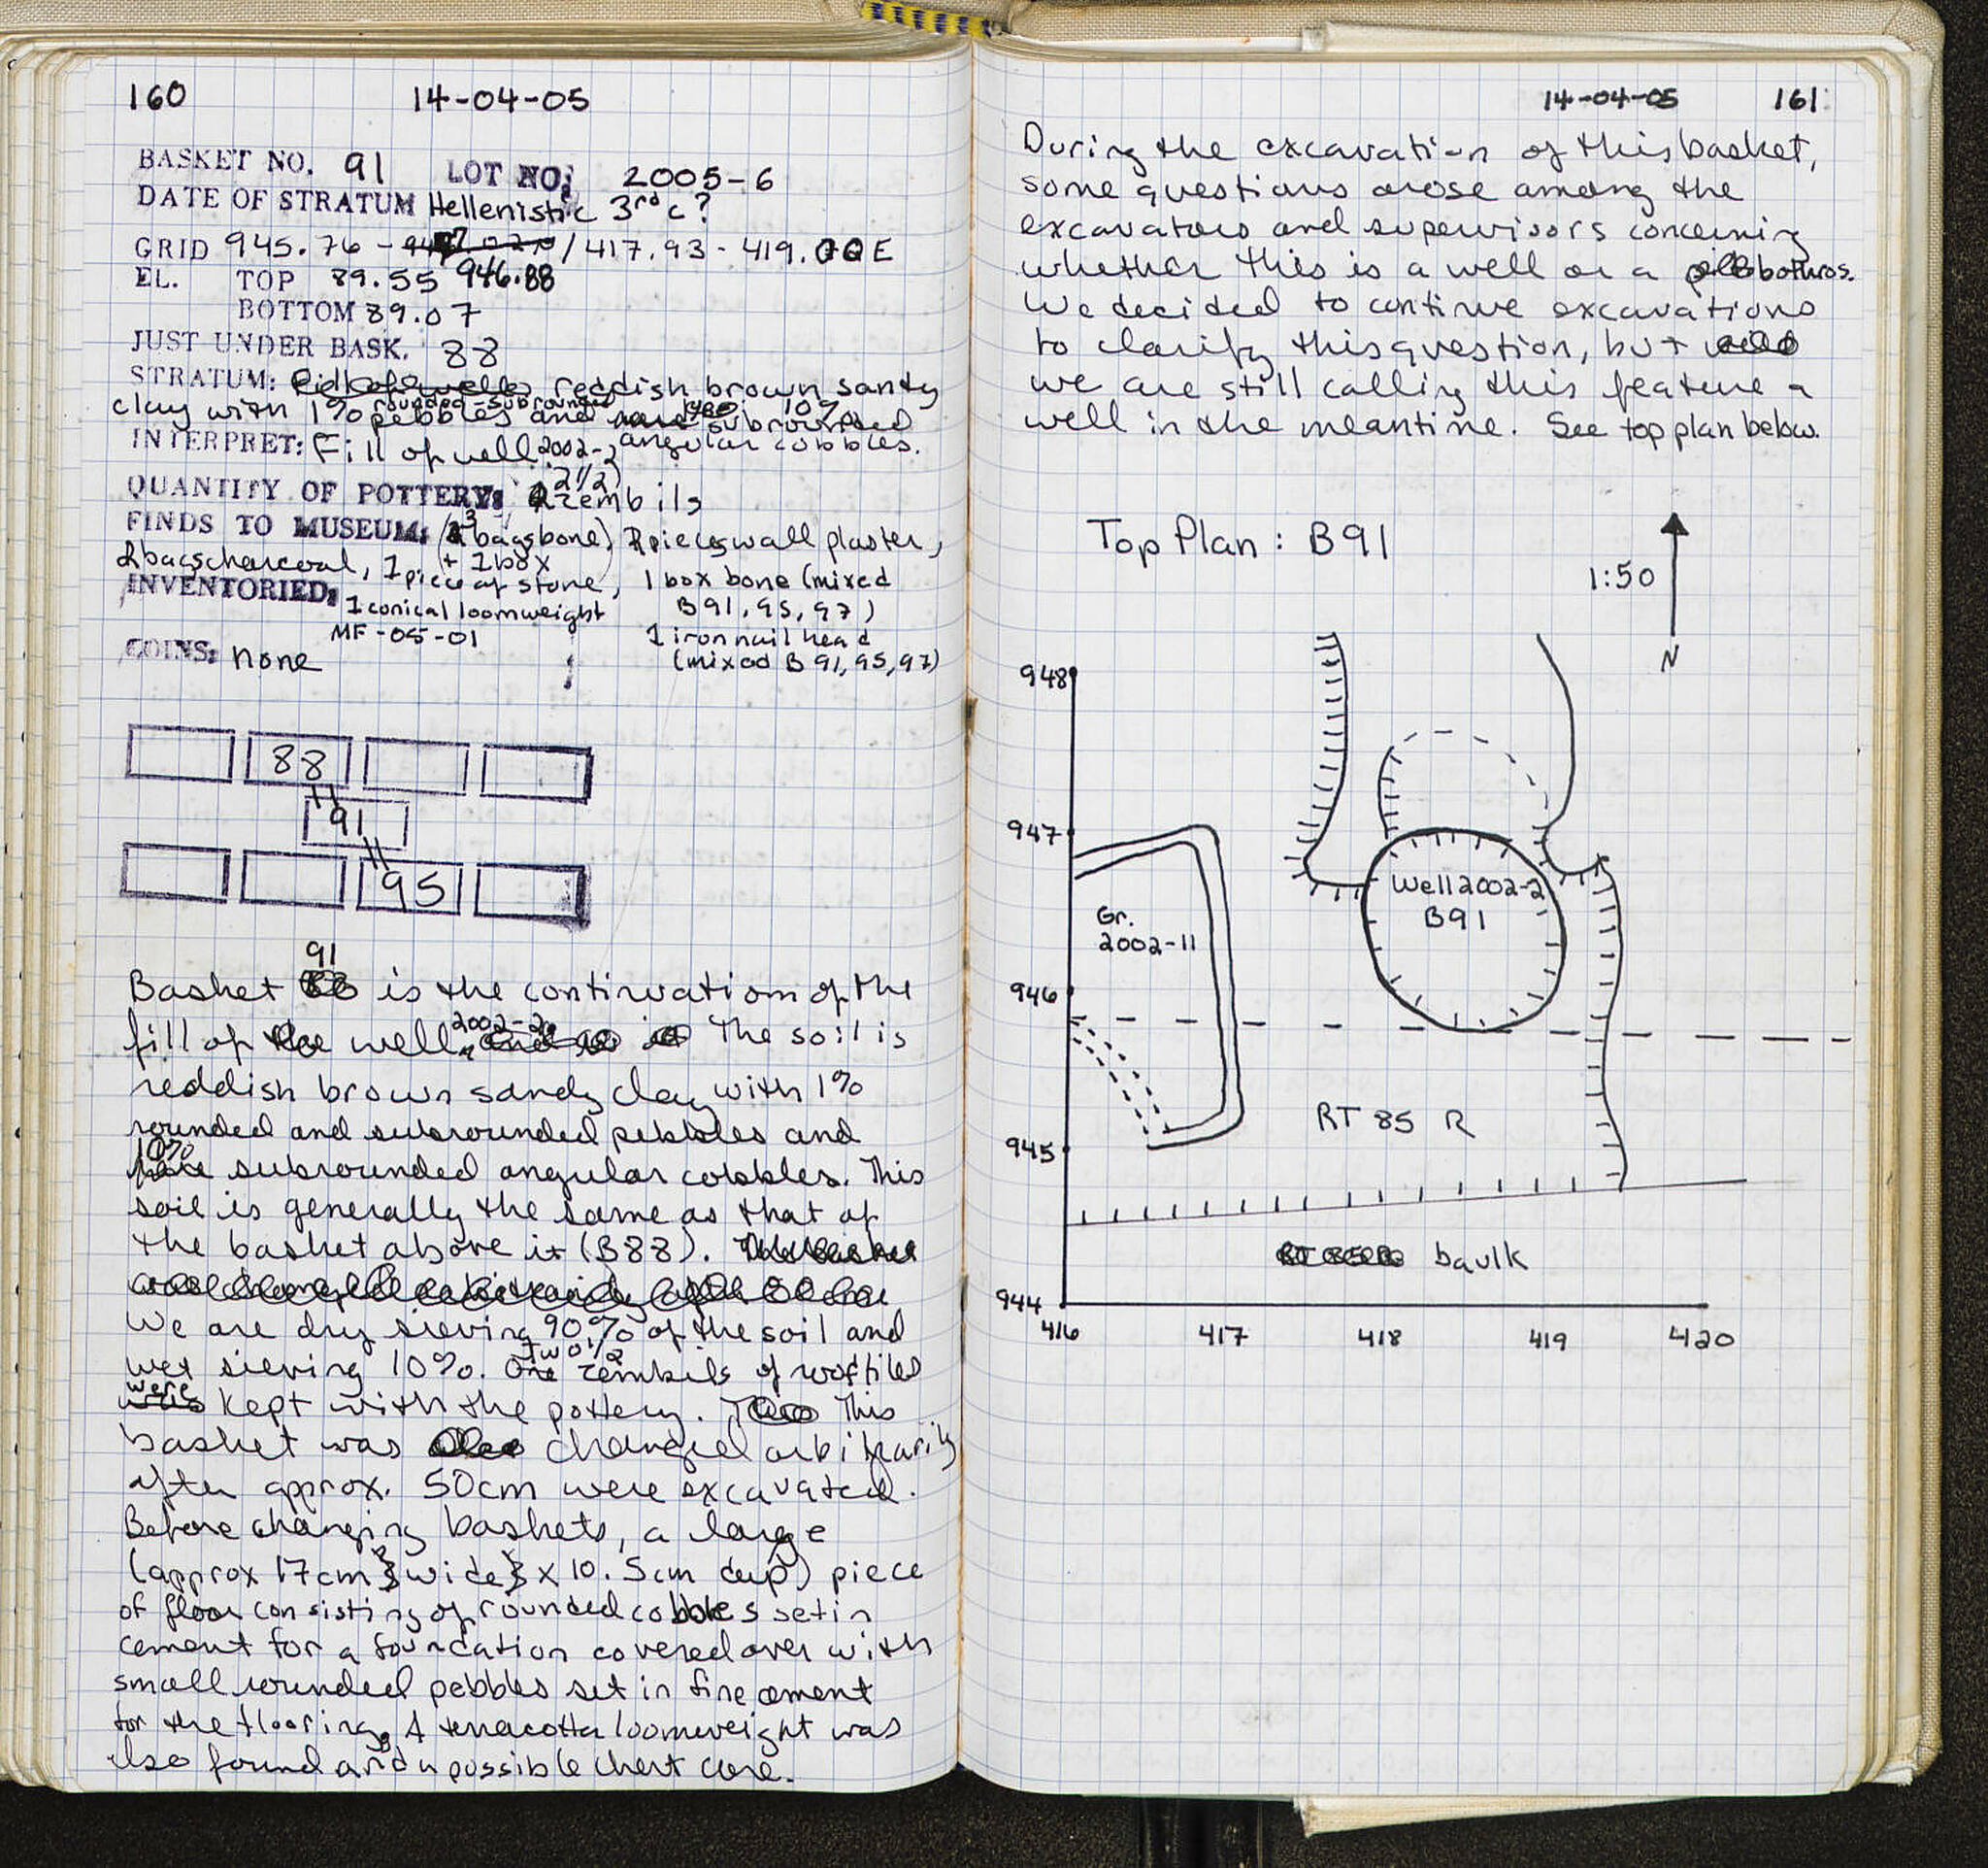 160 14-04-05
BASKET NO. 91 LOT NO: 2005-6
DATE OF STRATUM Hellenistic 3rd c?
GRID 945.76 - / 417.93 - 419.00 E
EL. TOP 89.55 946.88
BOTTOM 89.07
JUST UNDER BASK. 88
STRATUM: reddish brown sandy
clay with 1% rounded-subrounded pebbles and 10% subrounded
INTERPRET: Fill of well 2002-2 angular cobbles.
QUANTITY OF POTTERY: 2 1/2 zembils
FINDS TO MUSEUM: (3 bags bone) pieces wall plaster,
2 bags charcoal, + 1 box
1 piece of stone, 1 box bone (mixed
INVENTORIED: 1 conical loomweight B91, 95, 97)
MF-05-01 1 iron nail head
COINS: none (mixed B 91, 95, 97)
88
91
95
91
Basket is the continuation of the
fill of the well 2002-2. The soil is
reddish brown sandy clay with 1%
rounded and subrounded pebbles and
10% subrounded angular cobbles. This
soil is generally the same as that of
the basket above it (B88).
We are dry sieving 90% of the soil and
wet sieving 10%. Two 1/2 zembils of rooftiles
were kept with the pottery. This
basket was changed arbitrarily
after approx. 50cm were excavated.
Before changing baskets, a large
(approx 17cm {wide} x 10.5cm deep) piece
of floor consisting of rounded cobbles set in
cement for a foundation covered over with
small rounded pebbles set in fine cement
for the flooring. A terracotta loomweight was
also found and a possible chert core.
14-04-05 161
During the excavation of this basket,
some questions arose among the
excavators and supervisors concerning
whether this is a well or a bothros.
We decided to continue excavations
to clarify this question, but
we are still calling this feature a
well in the meantime. See top plan below.
Top Plan: B91
1:50
N
948
947
Well 2002-2
B91
Gr.
2002-11
946
RT 85 R
945
baulk
944
416 417 418 419 420